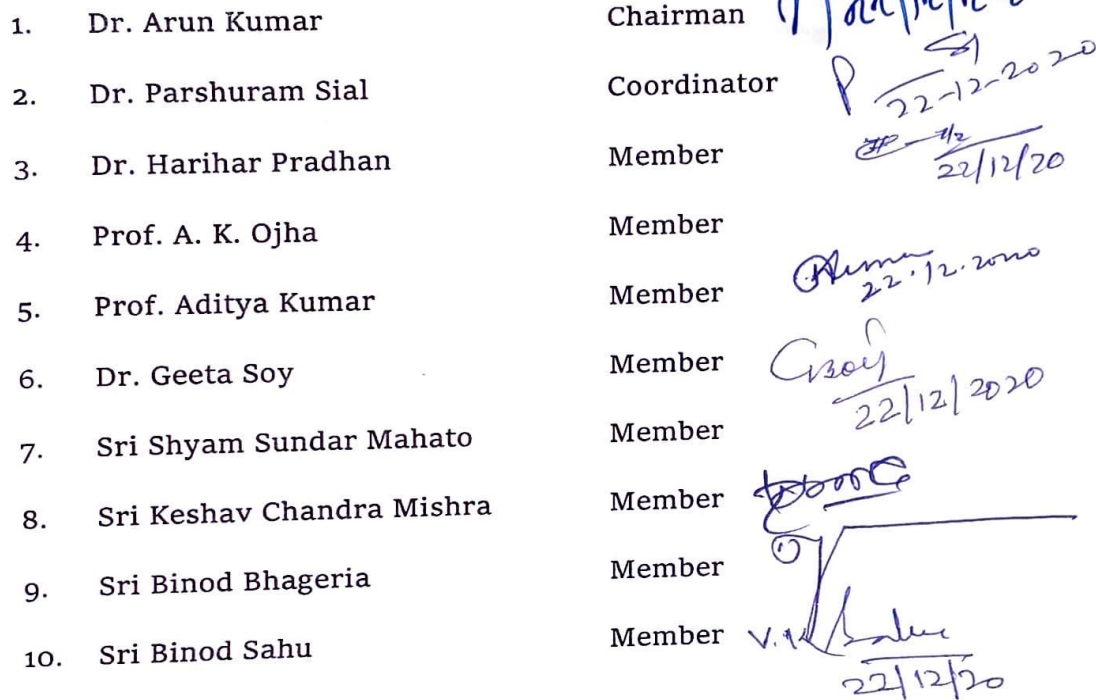 1. Dr. Arun Kumar Chairman
2. Dr. Parshuram Sial Coordinator 22-12-2020
3. Dr. Harihar Pradhan Member 22/12/20
4. Prof. A. K. Ojha Member
5. Prof. Aditya Kumar Member 22.12.2020
6. Dr. Geeta Soy Member GSoy 22/12/2020
7. Sri Shyam Sundar Mahato Member
8. Sri Keshav Chandra Mishra Member
9. Sri Binod Bhageria Member
10. Sri Binod Sahu Member 22/12/20